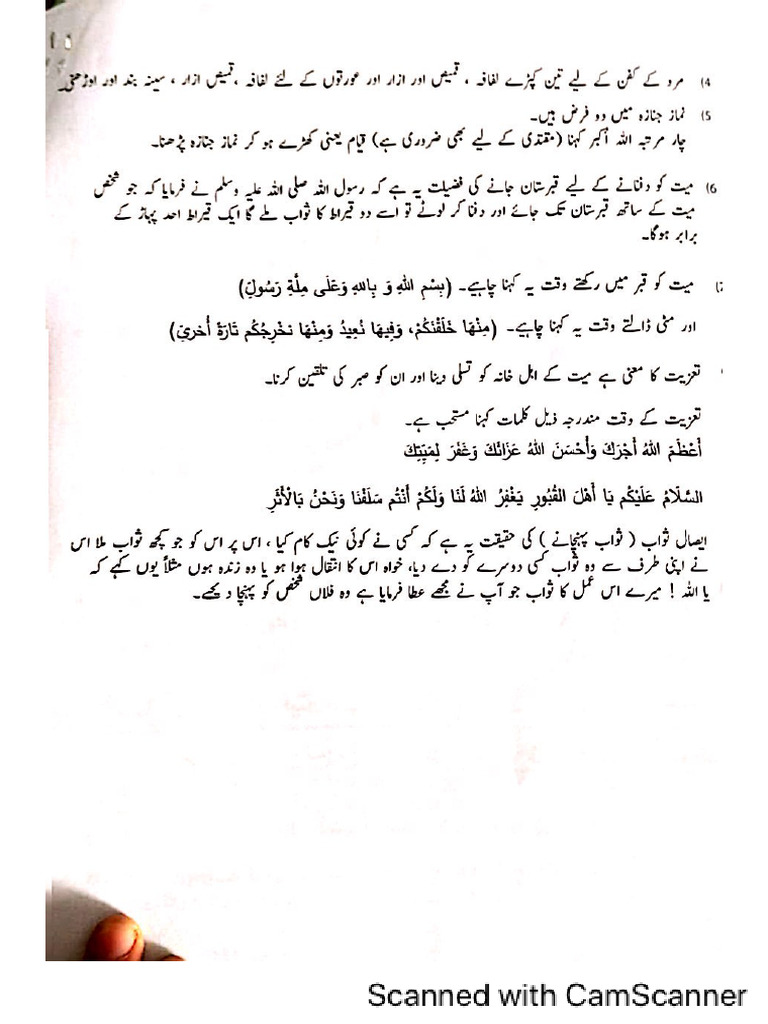 4) مرد کے کفن کے لیے تین کپڑے لفافہ ، قمیض اور ازار اور عورتوں کے لئے لفافہ ،قمیض ازار ، سینہ بند اور اوڑھنی
5) نماز جنازہ میں دو فرض ہیں۔
چار مرتبہ اللہ اُکبر کہنا (مقتدی کے لیے بھی ضروری ہے) قیام یعنی کھڑے ہو کر نماز جنازہ پڑھنا۔
6) میت کو دفنانے کے لیے قبرستان جانے کی فضیلت یہ ہے کہ رسول اللہ صلی اللہ علیہ وسلم نے فرمایا کہ جو شخص
میت کے ساتھ قبرستان تک جائے اور دفنا کر لوٹے تو اسے دو قیراط کا ثواب ملے گا ایک قیراط احد پہاڑ کے
برابر ہوگا۔
میت کو قبر میں رکھتے وقت یہ کہنا چاہیے۔ (بِسْمِ اللهِ وَ بِاللهِ وَعَلَى مِلَّةِ رَسُولِ)
اور مٹی ڈالتے وقت یہ کہنا چاہیے۔ (مِنْهَا خَلَقْنَكُمْ، وَفِيهَا نُعِيدُ وَمِنْهَا نخْرِجُكُم تَارَةً أُخرىٰ)
تعزیت کا معنی ہے میت کے اہل خانہ کو تسلی دینا اور ان کو صبر کی تلقین کرنا۔
تعزیت کے وقت مندرجہ ذیل کلمات کہنا مستحب ہے۔
أَعْظَمَ اللهُ أَجْرَكَ وَأَحْسَنَ اللهُ عَزَائَكَ وَغَفَرَ لِمَيِّتِكَ
السَّلَامُ عَلَيْكُم يَا أَهْلَ القُبُورِ يَغْفِرُ اللهُ لَنَا وَلَكُمْ أَنْتُم سَلَفُنَا وَنَحْنُ بِالْأَثَرِ
ایصال ثواب ( ثواب پہنچانے ) کی حقیقت یہ ہے کہ کسی نے کوئی نیک کام کیا ، اس پر اس کو جو کچھ ثواب ملا اس
نے اپنی طرف سے وہ ثواب کسی دوسرے کو دے دیا، خواہ اس کا انتقال ہوا ہو یا وہ زندہ ہوں مثلاً یوں کہے کہ
یا اللہ ! میرے اس عمل کا ثواب جو آپ نے مجھے عطا فرمایا ہے وہ فلاں شخص کو پہنچا دیجے۔
Scanned with CamScanner